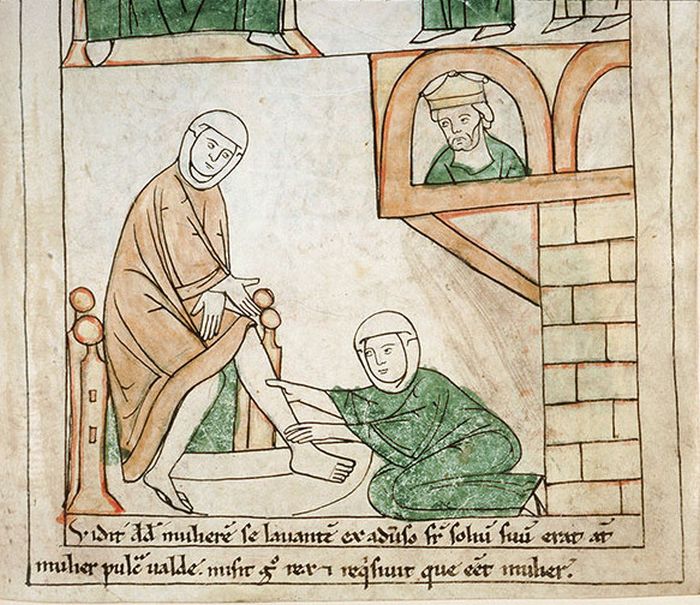 Vidit dd̄ mulierē se lauantē ex aduso sr̄ soliū suū erat at̄
mulier pulcr̄ ualde. misit gͦ rex ⁊ reqͥsiuit que eēt mulier.